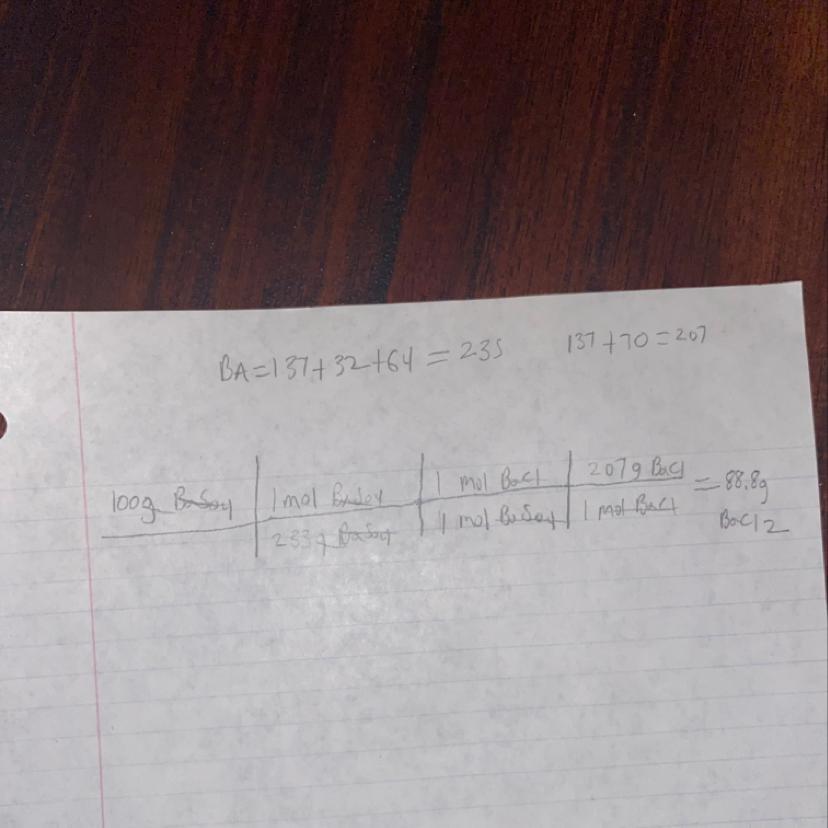 BA=137+32+64=235 137+70=207
100g BaSo4 1 mol BaSo4 1 mol BaCl 207g BaCl =88.8g
233g BaSo4 1 mol BaSo4 1 mol BaCl BaCl2